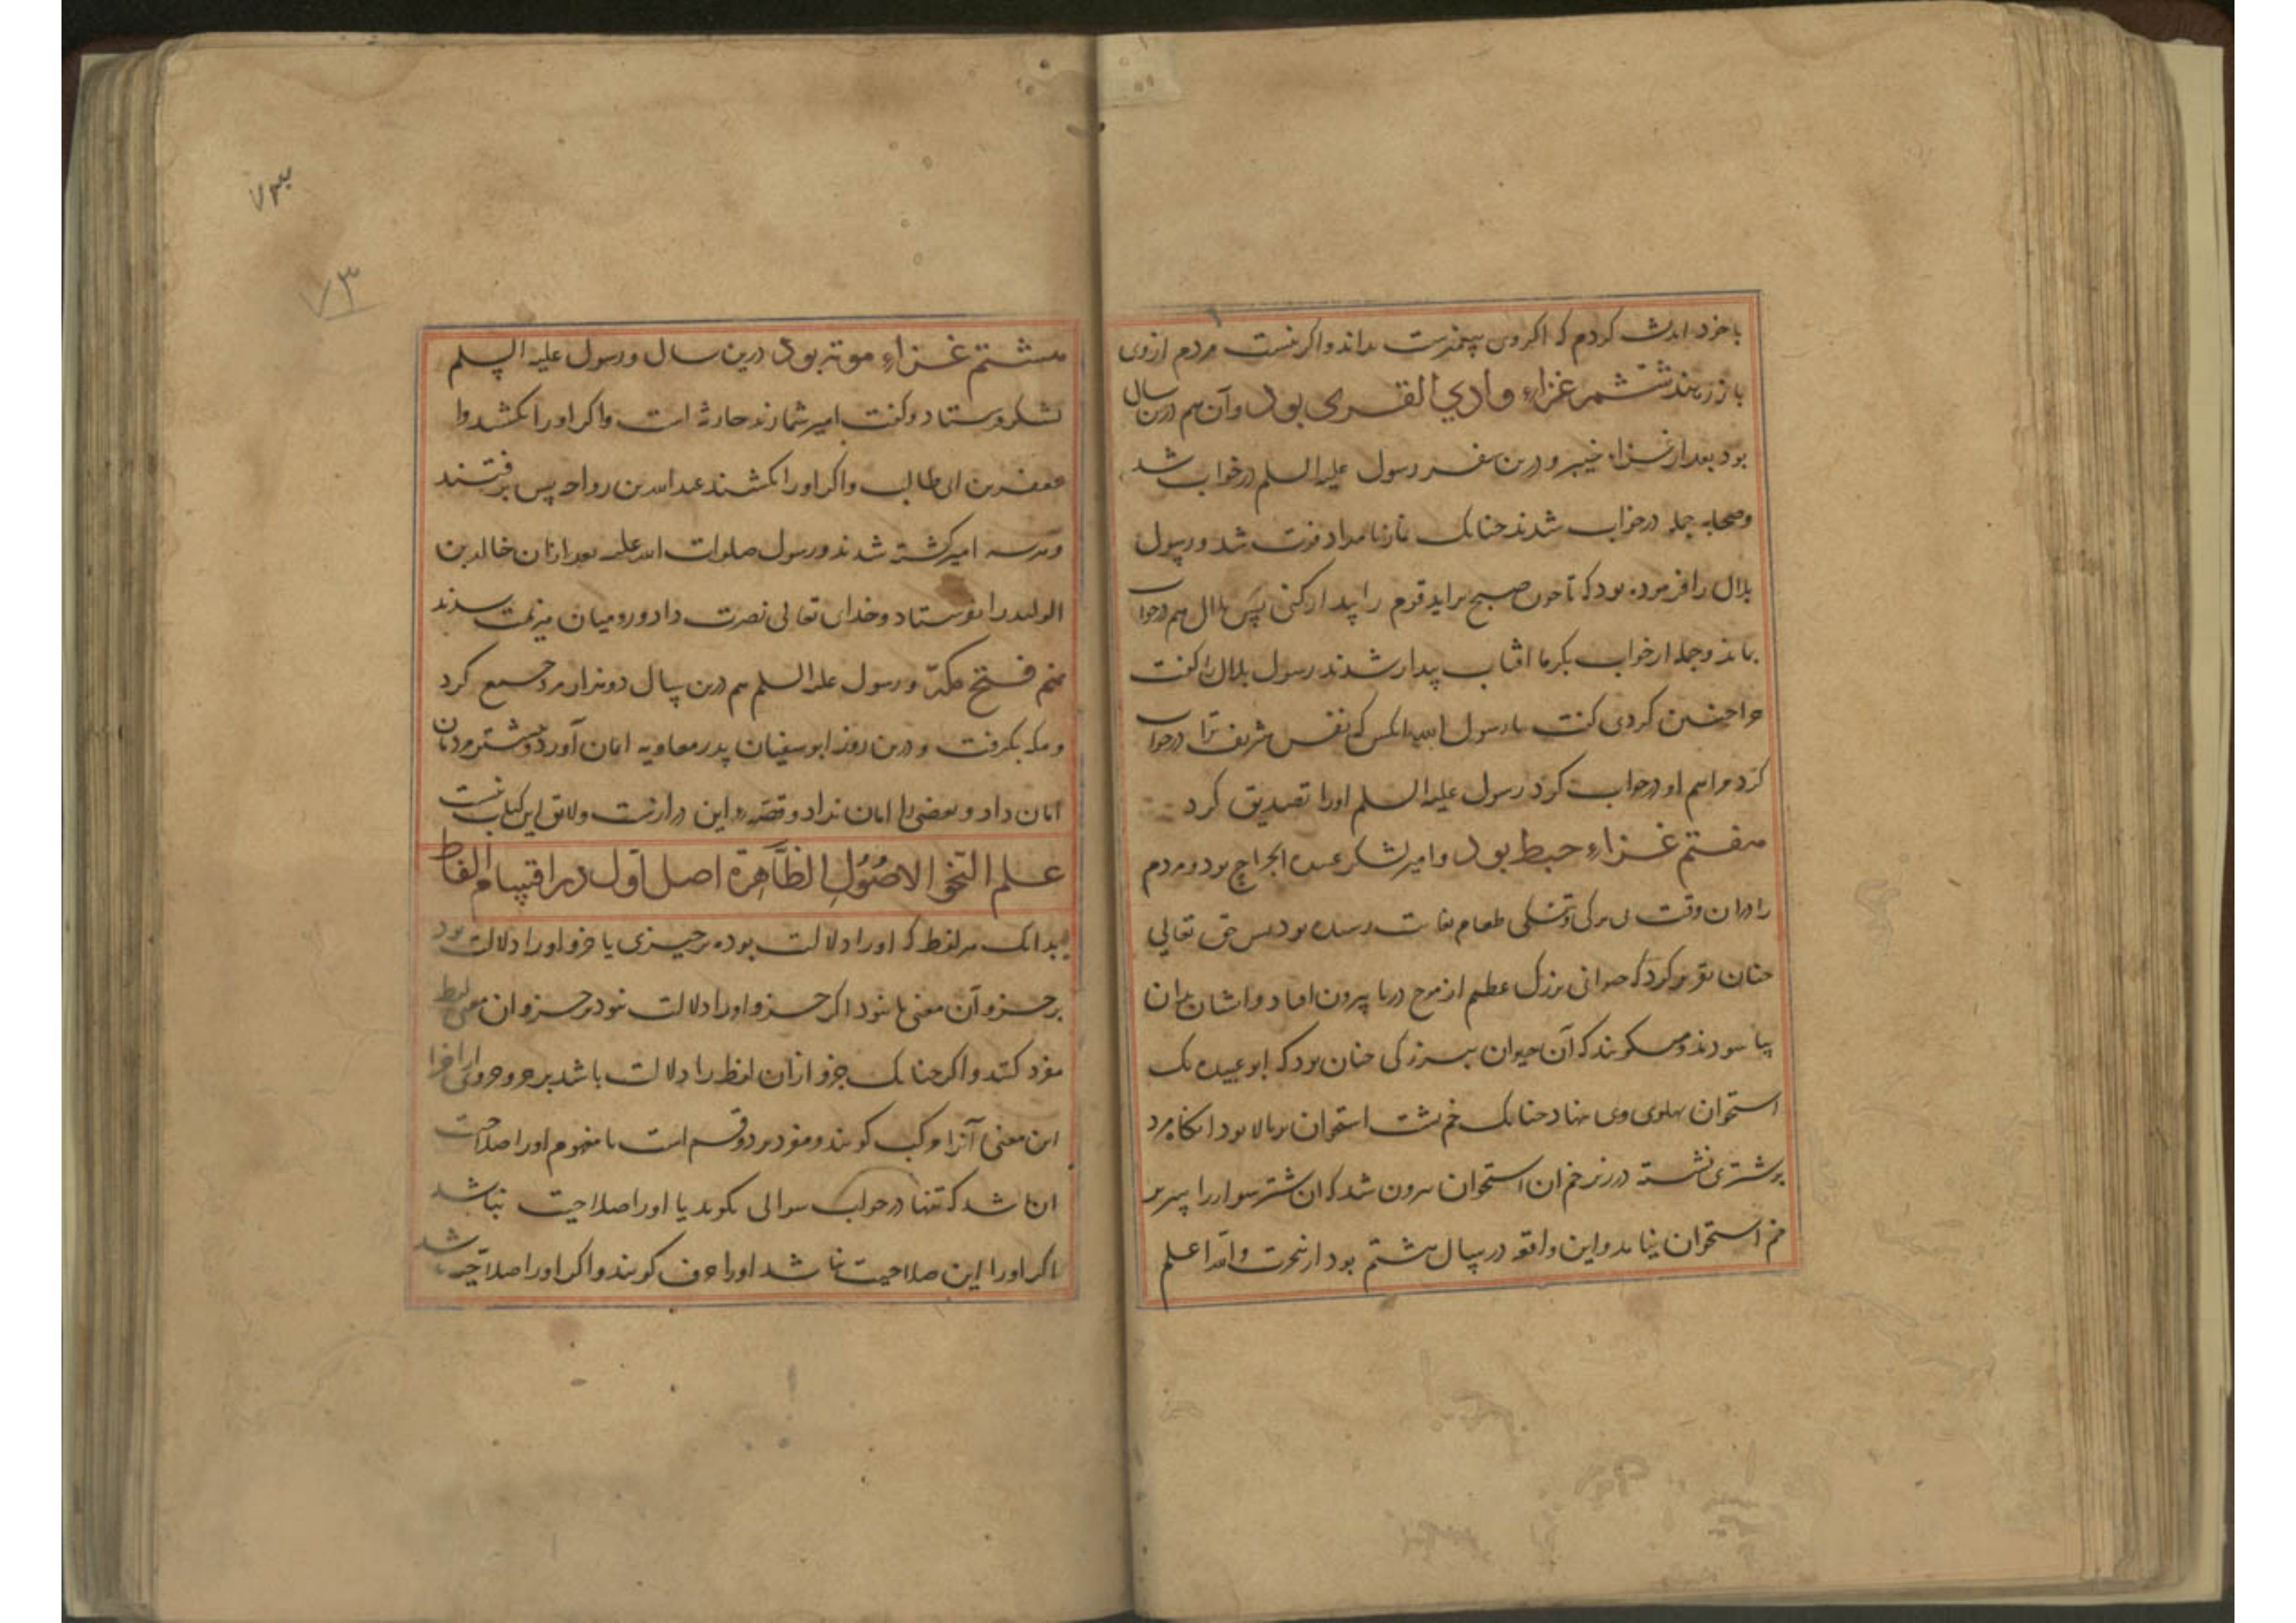 با خود اندیشه کردم که اگر وی پیغمبرست بداند و اگر نیست مردم از وی
باز رهند ششم غزاء وادي القری بود و آن هم درین سال
بود بعد از غزاء خیبر و درین سفر رسول علیه السلم در خواب شد
و صحابه جمله در خواب شدند چنانک نماز بامداد فوت شد و رسول
بلال را فرموده بود که تا چون صبح براید قوم را بیدار کنی پس بلال هم در خواب
بماند و جمله از خواب بگرما افتاب بیدار شدند رسول بلال را گفت
چرا چنین کردی گفت یا رسول الله انکس که نفس شریف ترا در خواب
کرد مرا هم او در خواب کرد رسول علیه السلم او را تصدیق کرد
هفتم غزاء حبط بود و امیر لشکر عبیده الجراح بود و مردم
را در ان وقت بی برگی و تنگی طعام بغایت رسیده بود پس حق تعالی
چنان تقدیر کرد که حیوانی بزرگ عظیم از موج دریا بیرون افتاد و ایشان بران
بیاسودند و میگویند که آن حیوان ببزرگی چنان بود که ابو عبیده یک
استخوان پهلوی وی بنهاد چنانک خم پشت استخوان بر بالا بود انگاه مرد
بر شتری نشسته در زیر خم ان استخوان بیرون شد که ان شتر سوار را سر بر
خم استخوان نیامد و این واقعه در سال هشتم بود از هجرت والله اعلم
۷۳
۷۳
هشتم غزاء موته بود درین سال و رسول علیه السلم
لشکر فرستاد و گفت امیر شما زید حارثه است و اگر او را بکشند و ا
جعفر بن ابی طالب و اگر او را بکشند عبدالله بن رواحه پس برفتند
و هر سه امیر کشته شدند و رسول صلوات الله علیه بعد ازیشان خالد بن
الولید را بفرستاد و خدای تعالی نصرت داد و رومیان هزیمت شدند
نهم فتح مکه و رسول علیه السلم هم درین سال دو هزار مرد جمع کرد
و مکه بگرفت و درین روز ابو سفیان پدر معاویه امان آورد و بیشتر مردمان
امان داد و بعضی را امان نداد و قصه این درازست و لایق این کتاب نیست
علم النحو الاصول الظاهرة اصل اول در اقسام الفاظ
بدانک هر لفظ که او را دلالت بود بر چیزی یا جزو او را دلالت بود
بر جزو آن معنی یا نبود اگر جزو او را دلالت نبود بر جزو ان معنی لفظ
مفرد گویند و اگر چنانک جزو از ان لفظ را دلالت باشد بر جزوی از اجزا
این معنی آنرا مرکب گویند و مفرد بر دو قسم است یا مفهوم او را صلاحیت
ان باشد که تنها در جواب سوالی بگوید یا او را صلاحیت نباشد
اگر او را این صلاحیت نباشد او را حرف گویند و اگر او را صلاحیت باشد